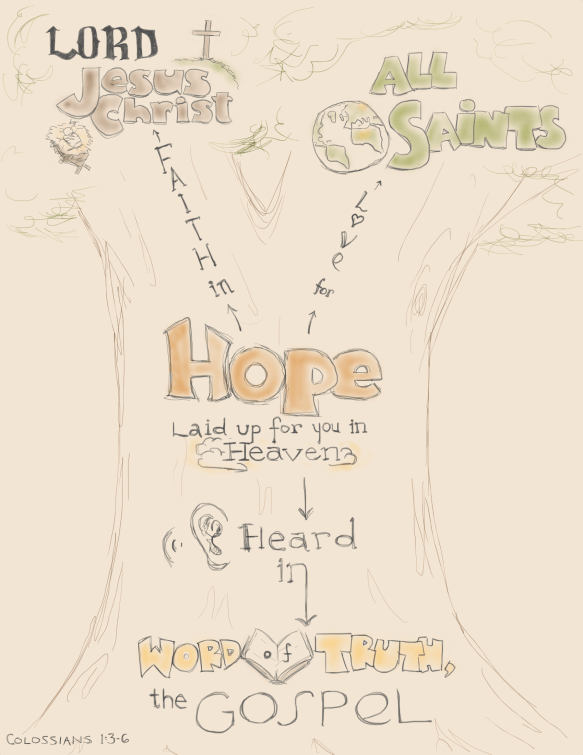 LORD
Jesus
Christ
ALL
SAiNTS
FAITH in
Love for
Hope
Laid up for you in
Heaven
Heard
in
WORD of TRUTH,
the GOSPEL
COLOSSIANS 1:3-6